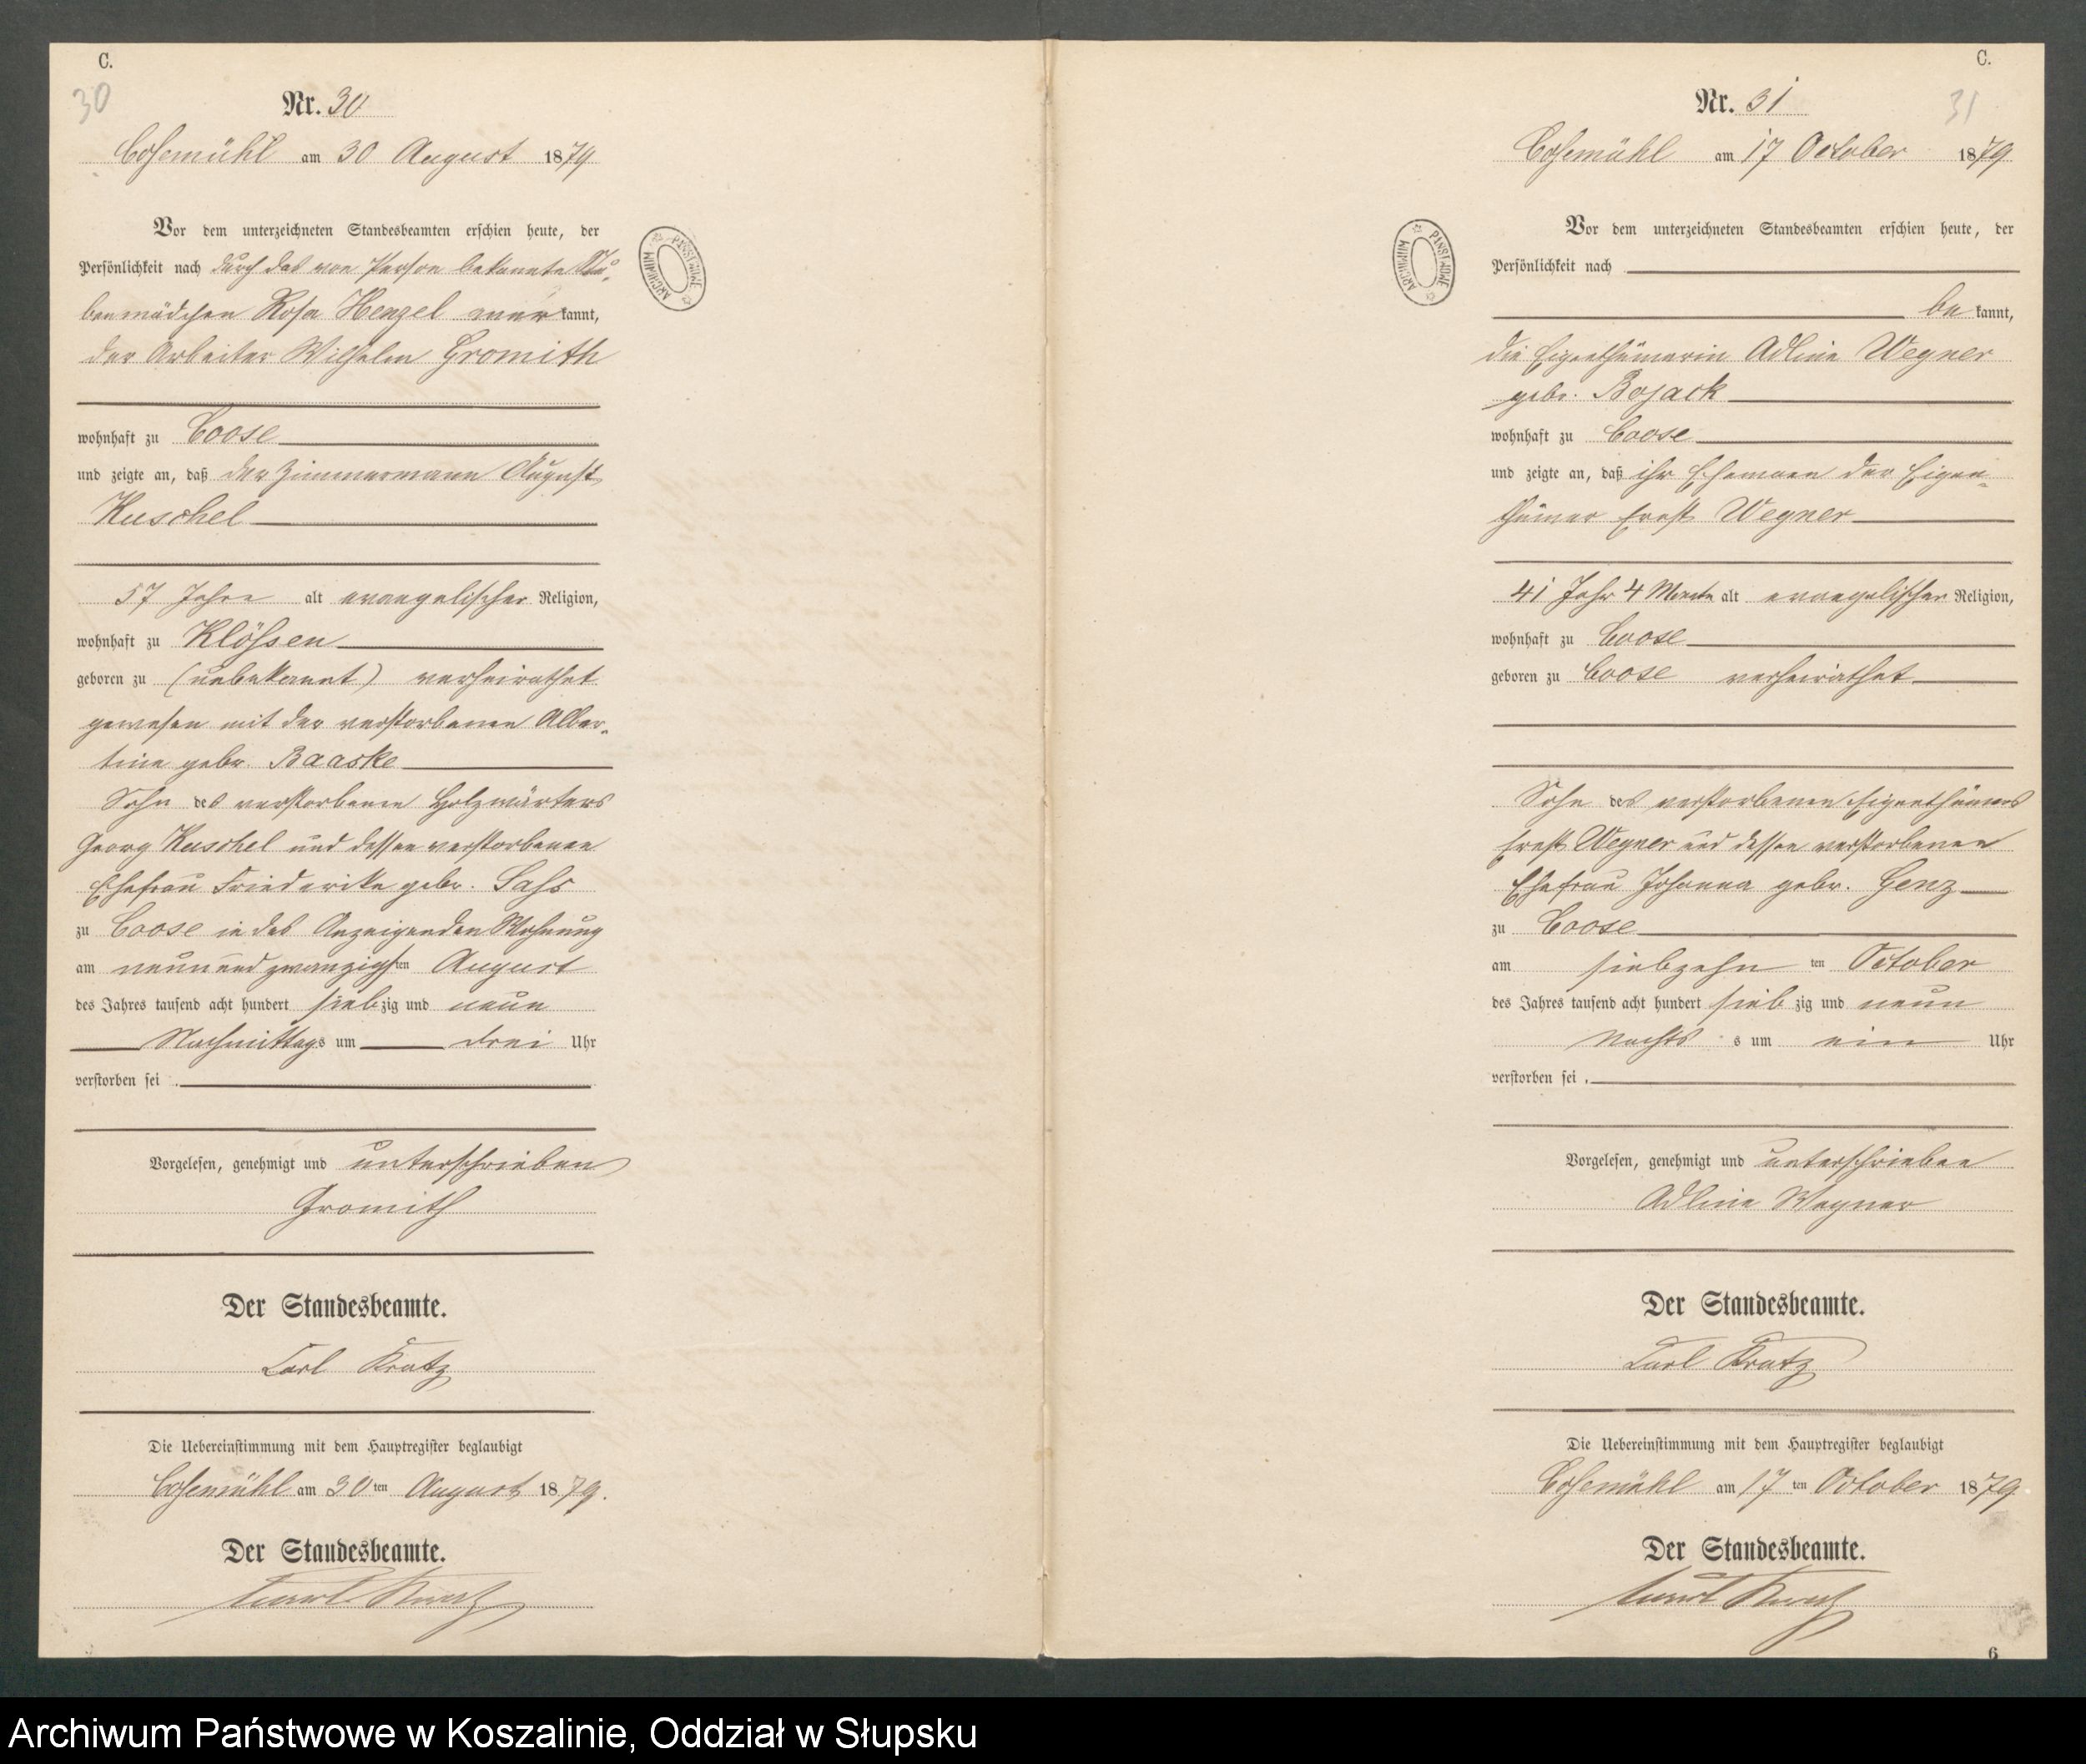 C.
30
Nr. 30
Cosemühl am 30 August 1879
Vor dem unterzeichneten Standesbeamten erschien heute, der
Persönlichkeit nach durch das von Person bekannte Stu-
benmädchen Rosa Henzel kannt,
der Arbeiter Wilhelm Gromith
wohnhaft zu Coose
und zeigte an, daß der Zimmermann August
Kuschel
57 Jahre alt evangelischer Religion,
wohnhaft zu Klössen
geboren zu (unbekannt) verheirathet
gewesen mit der verstorbenen Alber-
tine gebr. Baaske
Sohn des verstorbenen Holzwärters
Georg Kuschel und dessen verstorbenen
Ehefrau Friederike gebr. Sass
zu Coose in des Anzeigenden Wohnung
am neunundzwanzigsten August
des Jahres tausend acht hundert siebzig und neun
Nachmittags um drei Uhr
verstorben sei.
Vorgelesen, genehmigt und unterschrieben
Gromith
Der Standesbeamte.
Carl Kratz
Die Uebereinstimmung mit dem Hauptregister beglaubigt
Cosemühl am 30 ten August 1879.
Der Standesbeamte.
Carl Kratz
C.
31
Nr. 31
Cosemühl am 17 October 1879
Vor dem unterzeichneten Standesbeamten erschien heute, der
Persönlichkeit nach
be kannt,
die Eigenthümerin Adline Wegner
gebr. Bojack
wohnhaft zu Coose
und zeigte an, daß ihr Ehemann der Eigen-
thümer Ernst Wegner
41 Jahr 4 Monate alt evangelischer Religion,
wohnhaft zu Coose
geboren zu Coose verheirathet
Sohn des verstorbenen Eigenthümers
Ernst Wegner und dessen verstorbenen
Ehefrau Johanna gebr. Genz
zu Coose
am siebzehn ten October
des Jahres tausend acht hundert sieb zig und neun
Nachts s um ein Uhr
verstorben sei.
Vorgelesen, genehmigt und unterschrieben
Adline Wegner
Der Standesbeamte.
Carl Kratz
Die Uebereinstimmung mit dem Hauptregister beglaubigt
Cosemühl am 17 ten October 1879
Der Standesbeamte.
Carl Kratz
6
ARCHIWUM PAŃSTWOWE
ARCHIWUM PAŃSTWOWE
Archiwum Państwowe w Koszalinie, Oddział w Słupsku